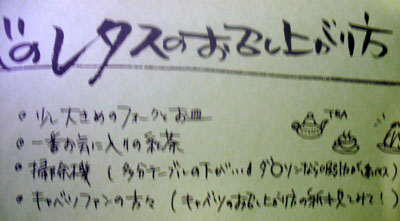 のレタスのお召し上がり方
• 少し大きめのフォークとお皿
• 一番お気に入りの紅茶
TEA
• 掃除機 ( 多分テーブルの下がいい! ダ〇ソンなら
• キャベツファンの方々 ( キャベツのお召し上がり方の紙を見てみて! )